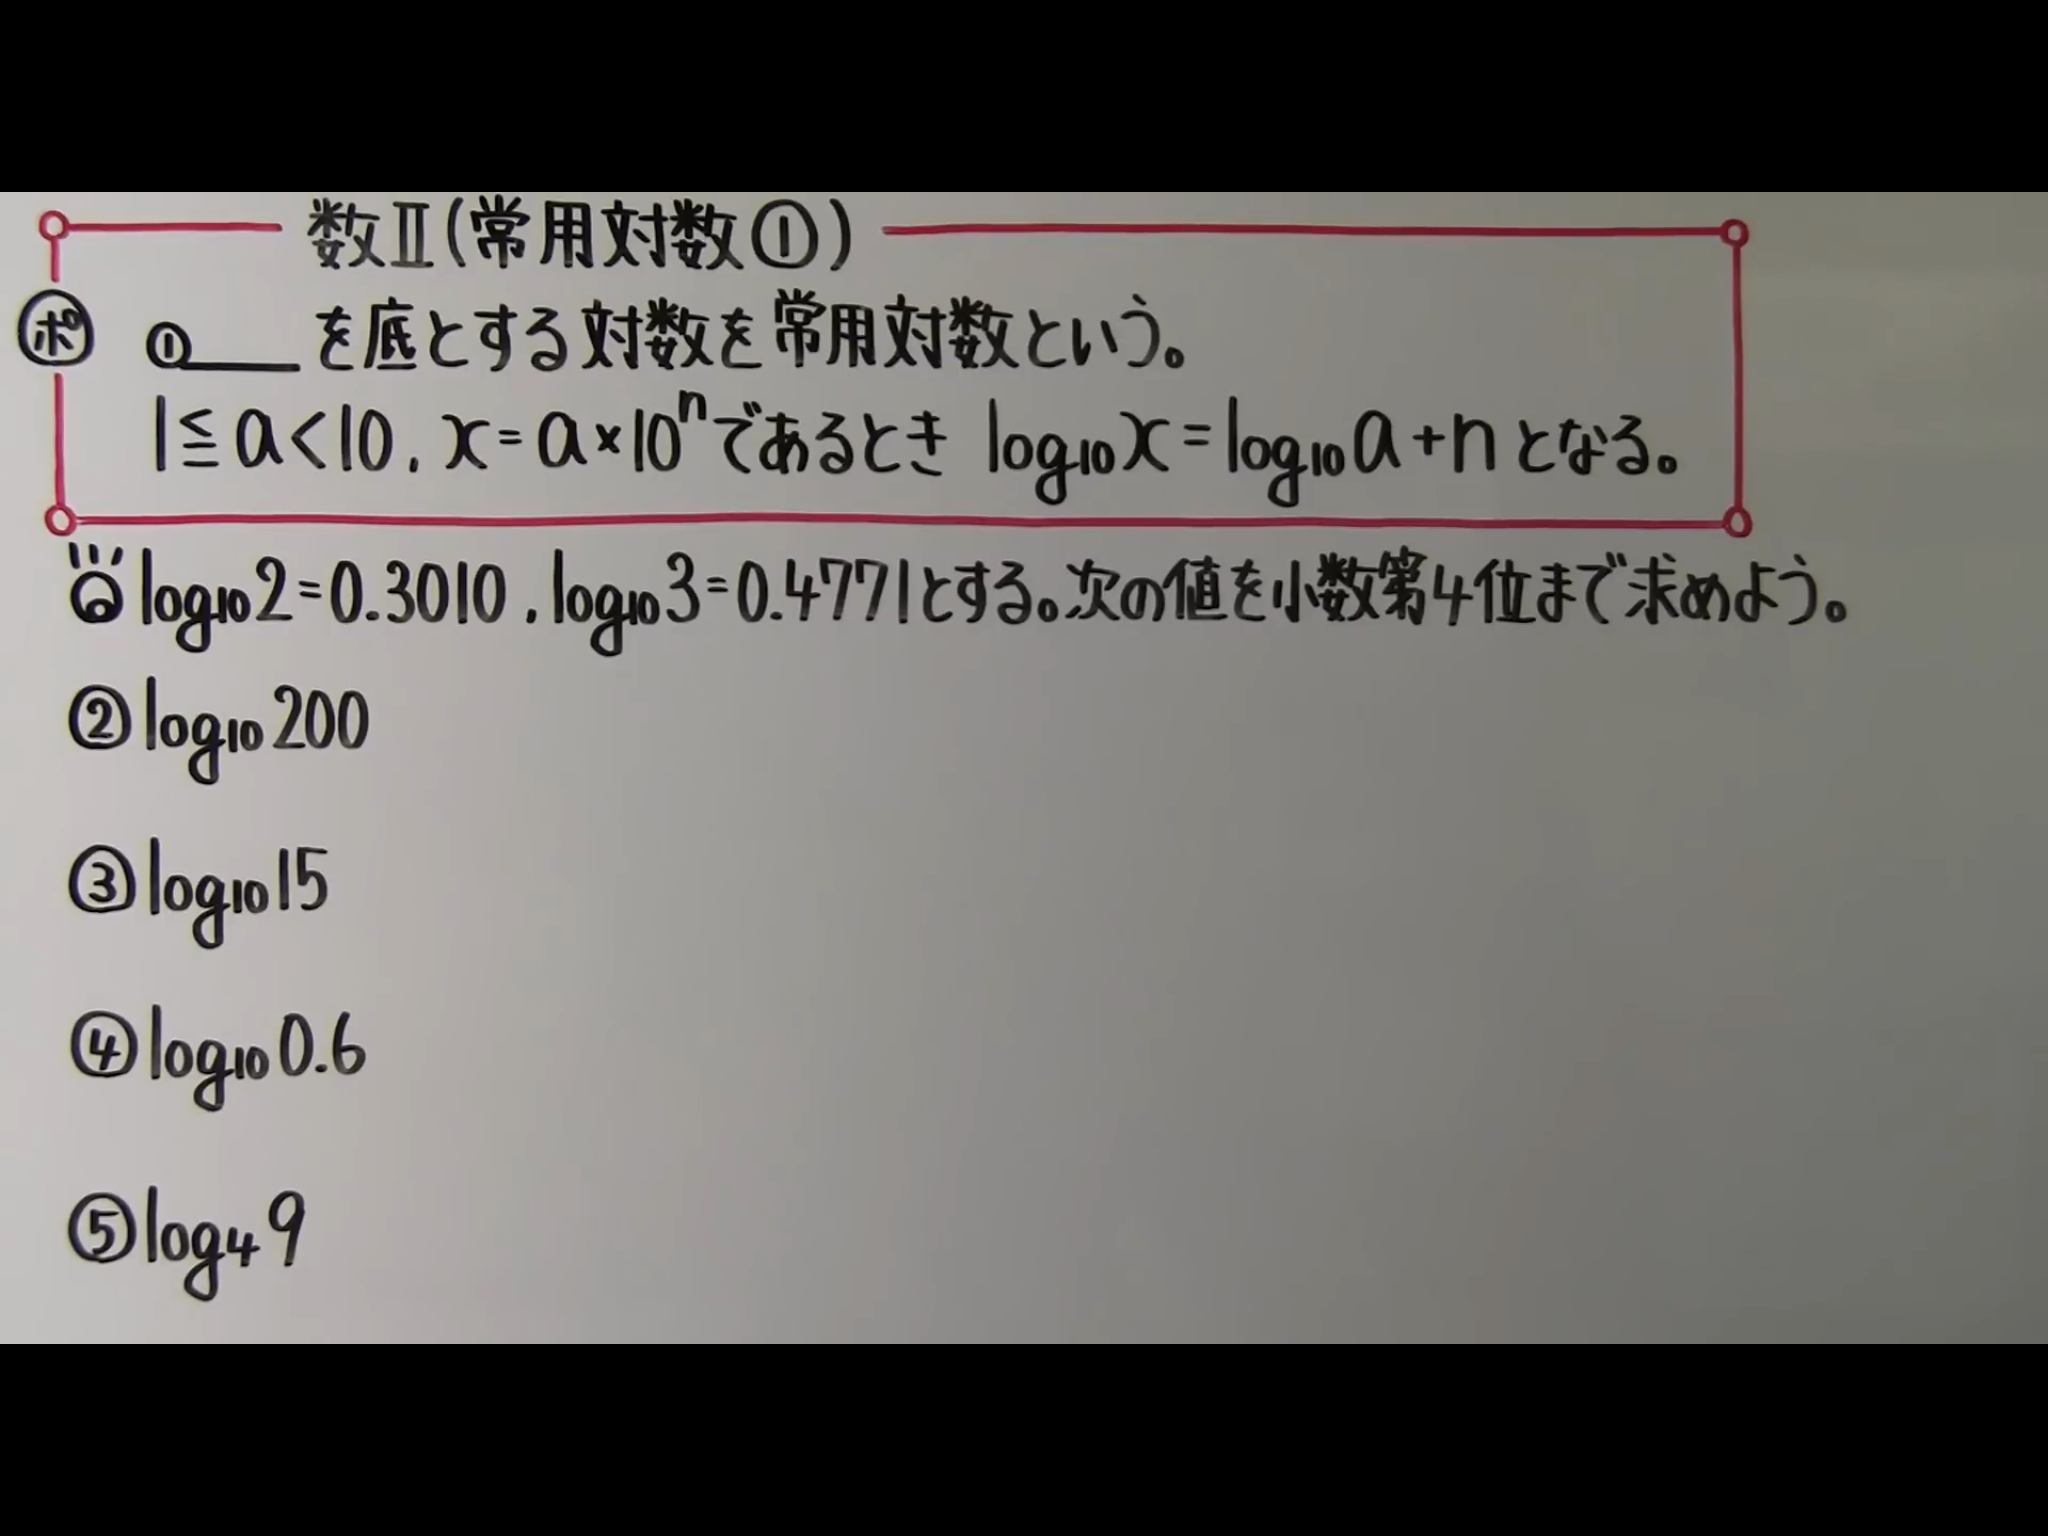 数Ⅱ(常用対数①)
ポ ①___を底とする対数を常用対数という。
1≦a<10, x=a×10ⁿであるとき log₁₀x=log₁₀a+nとなる。
log₁₀2=0.3010, log₁₀3=0.4771とする。次の値を小数第4位まで求めよう。
②log₁₀200
③log₁₀15
④log₁₀0.6
⑤log₄9